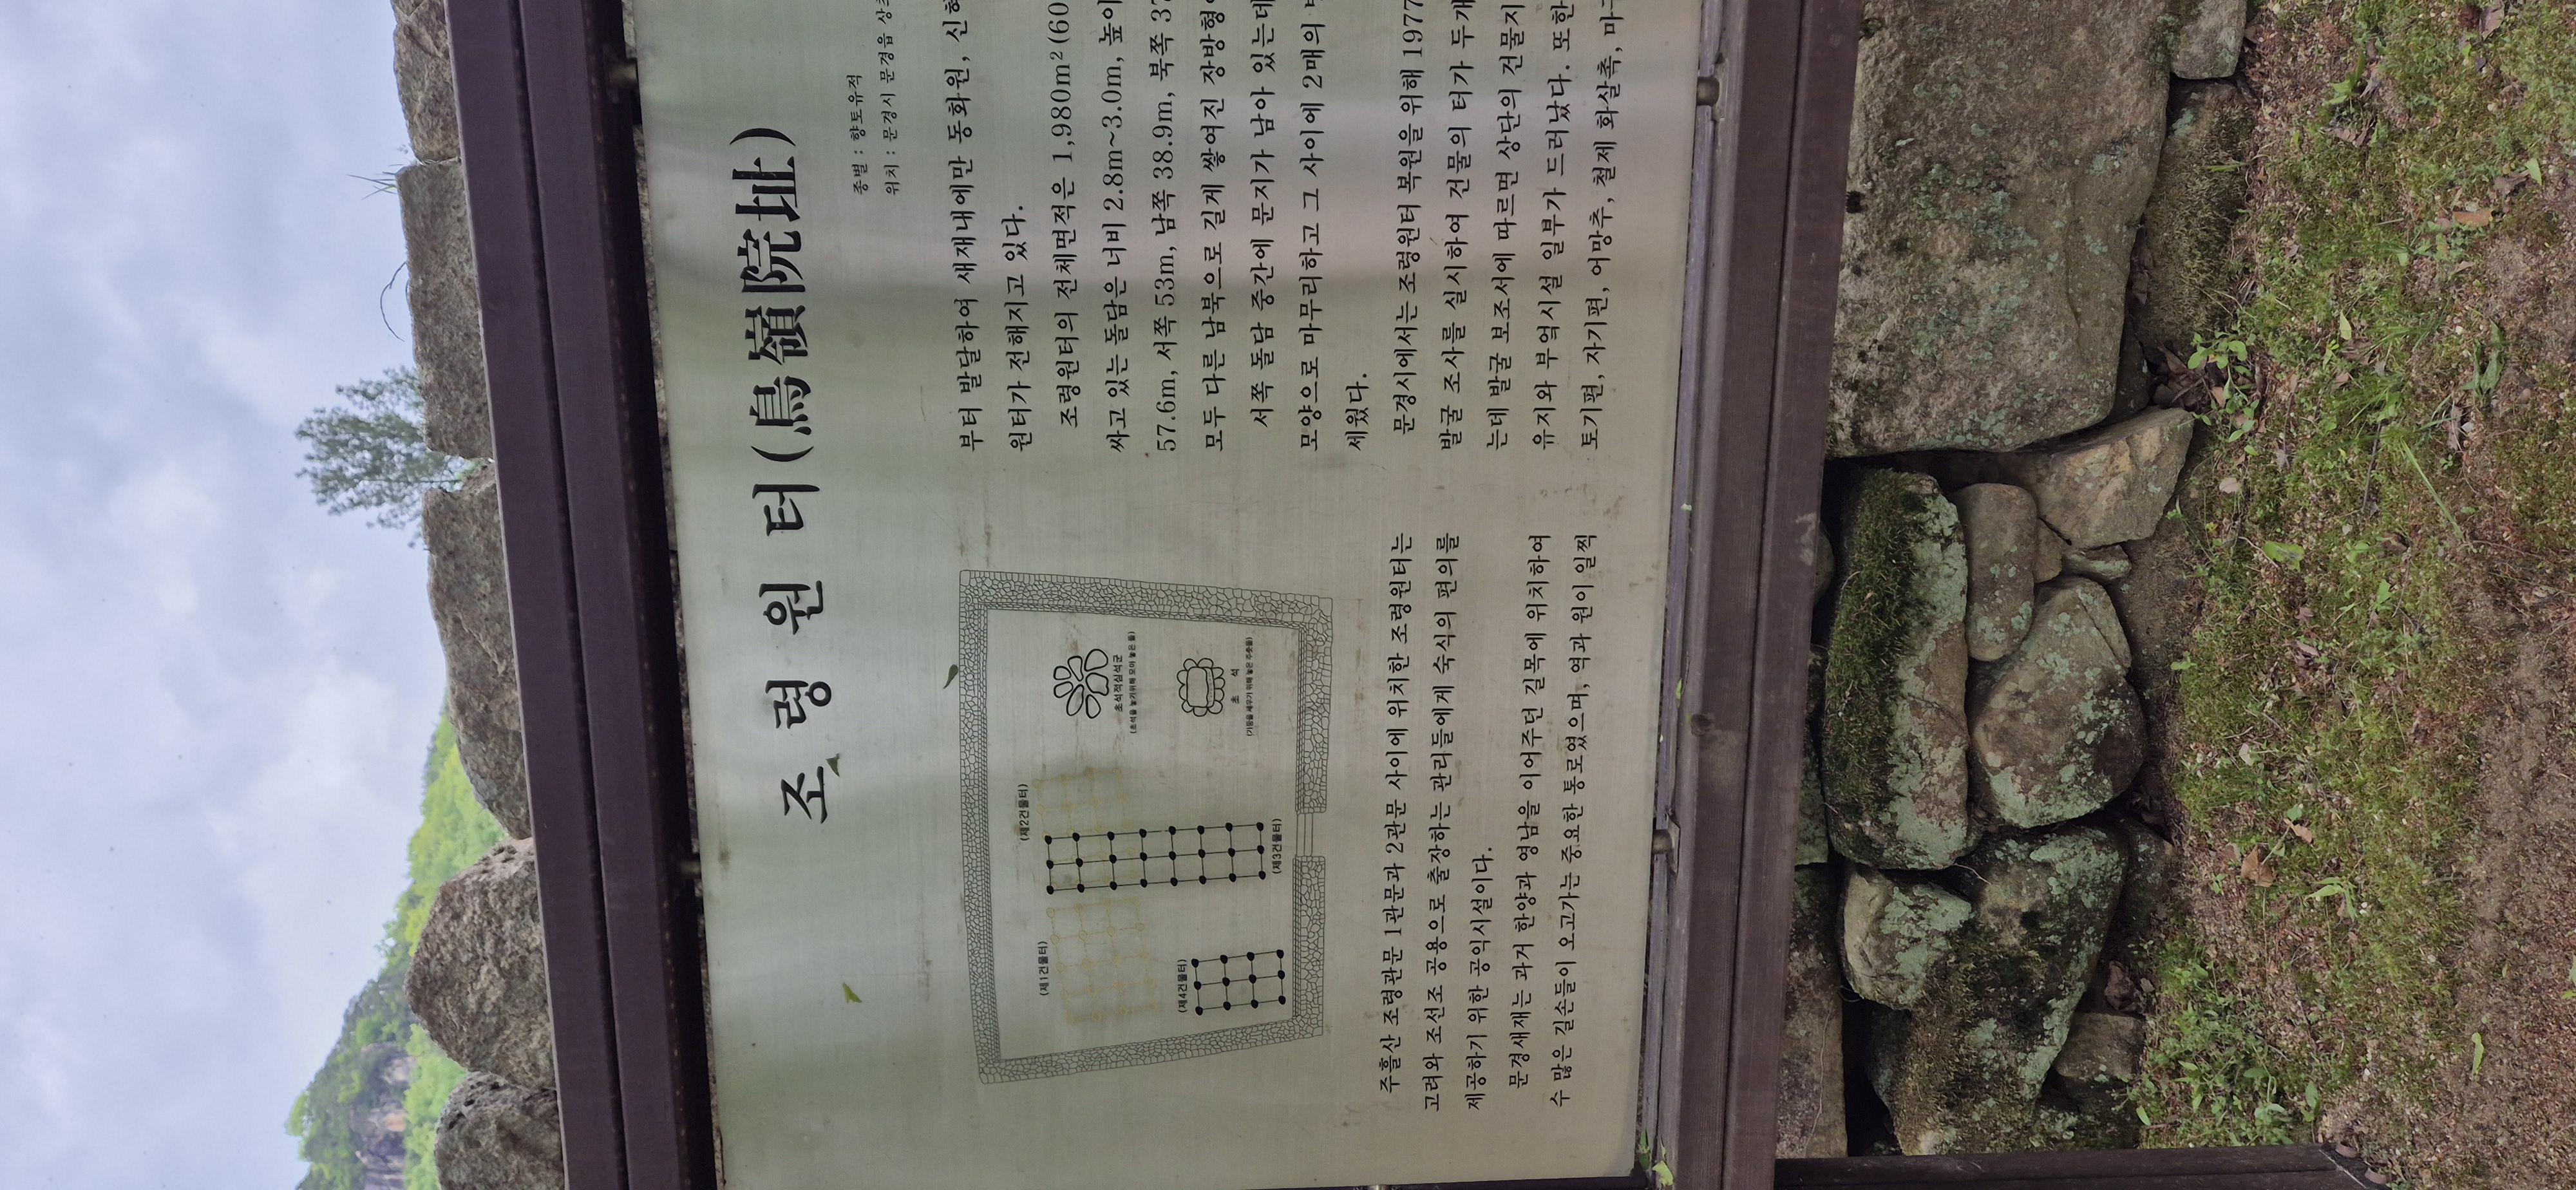 조 령 원 터(鳥嶺院址)
종별 : 향토유적
위치 : 문경시 문경읍
(제1건물터)
(제2건물터)
(제4건물터)
(제3건물터)
초석적심석군
(초석을 놓기위해 모아 놓은 돌)
초 석
(기둥을 세우기 위해 놓은 주춧돌)
주흘산 조령관문 1관문과 2관문 사이에 위치한 조령원터는
고려와 조선조 공용으로 출장하는 관리들에게 숙식의 편의를
제공하기 위한 공익시설이다.
문경새재는 과거 한양과 영남을 이어주던 길목에 위치하여
수 많은 길손들이 오고가는 중요한 통로였으며, 역과 원이 일찍
부터 발달하여 새재내에만 동화원, 신혜
원터가 전해지고 있다.
조령원터의 전체면적은 1,980m² (60
싸고 있는 돌담은 너비 2.8m~3.0m, 높이
57.6m, 서쪽 53m, 남쪽 38.9m, 북쪽 37
모두 다른 남북으로 길게 쌓여진 장방형
서쪽 돌담 중간에 문지가 남아 있는데
모양으로 마무리하고 그 사이에 2매의
세웠다.
문경시에서는 조령원터 복원을 위해 1977
발굴 조사를 실시하여 건물의 터가 두개
는데 발굴 보조서에 따르면 상단의 건물지
유지와 부엌시설 일부가 드러났다. 또한
토기편, 자기편, 어망추, 철제 화살촉, 마